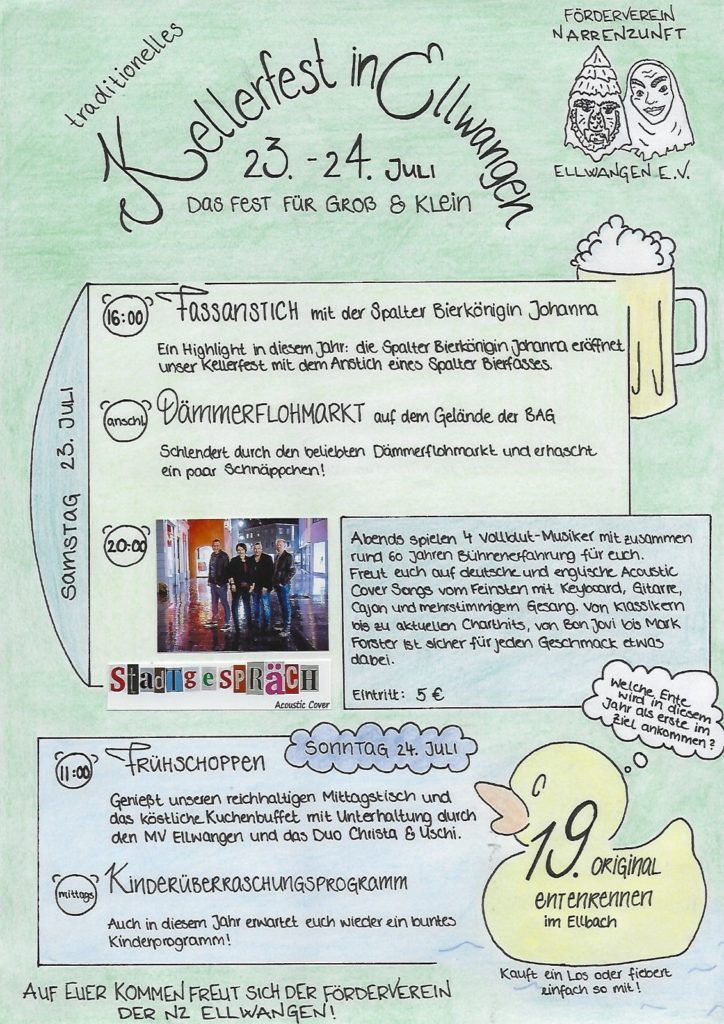 FÖRDERVEREIN
NARRENZUNFT
ELLWANGEN E.V.
traditionelles
Kellerfest in Ellwangen
23. - 24. JULI
DAS FEST FÜR GROß & KLEIN
SAMSTAG 23. JULI
16:00 FASSANSTICH mit der Spalter Bierkönigin Johanna
Ein Highlight in diesem Jahr: die Spalter Bierkönigin Johanna eröffnet
unser Kellerfest mit dem Anstich eines Spalter Bierfasses.
anschl. DÄMMERFLOHMARKT auf dem Gelände der BAG
Schlendert durch den beliebten Dämmerflohmarkt und erhascht
ein paar Schnäppchen!
20:00
StadtgeSPRÄCH
Acoustic Cover
Abends spielen 4 Vollblut-Musiker mit zusammen
rund 60 Jahren Bühnenerfahrung für euch.
Freut euch auf deutsche und englische Acoustic
Cover Songs vom Feinsten mit Keyboard, Gitarre,
Cajon und mehrstimmigem Gesang. Von Klassikern
bis zu aktuellen Charthits, von Bon Jovi bis Mark
Forster ist sicher für jeden Geschmack etwas
dabei.
Eintritt: 5 €
SONNTAG 24. JULI
11:00 FRÜHSCHOPPEN
Genießt unseren reichhaltigen Mittagstisch und
das köstliche Kuchenbuffet mit Unterhaltung durch
den MV Ellwangen und das Duo Christa & Uschi.
mittags KINDERÜBERRASCHUNGSPROGRAMM
Auch in diesem Jahr erwartet euch wieder ein buntes
Kinderprogramm!
Welche Ente
wird in diesem
Jahr als erste im
Ziel ankommen?
19. ORIGINAL
ENTENRENNEN
im Ellbach
Kauft ein Los oder fiebert
einfach so mit!
AUF EUER KOMMEN FREUT SICH DER FÖRDERVEREIN
DER NZ ELLWANGEN!